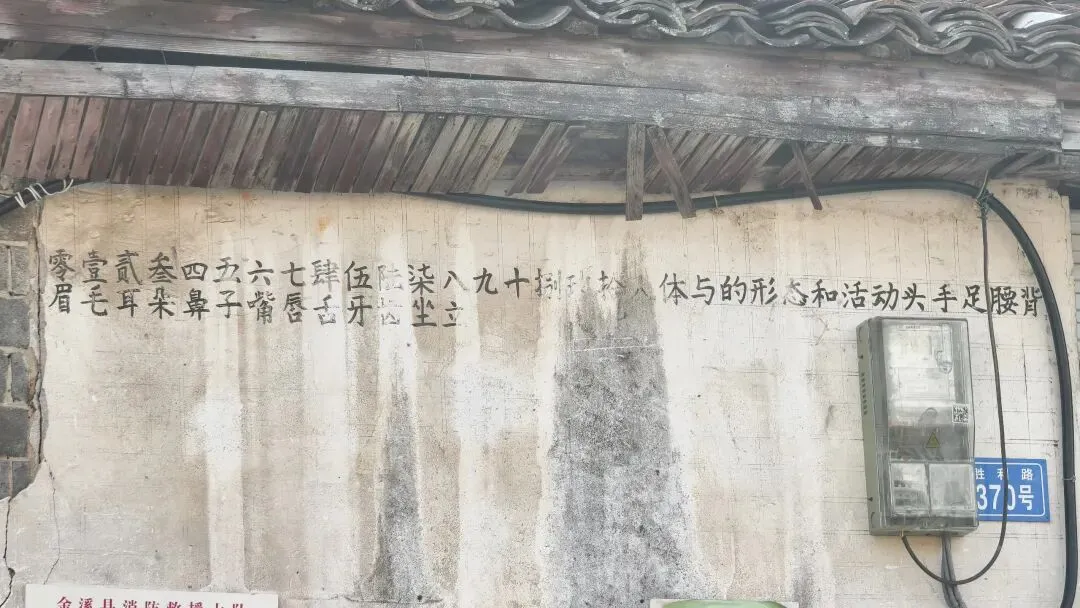 零壹贰叁四五六七肆伍陆柒八九十捌玖拾人体与的形态和活动头手足腰背
眉毛耳朵鼻子嘴唇舌牙齿坐立
胜利路
370号
金溪县消防救援大队